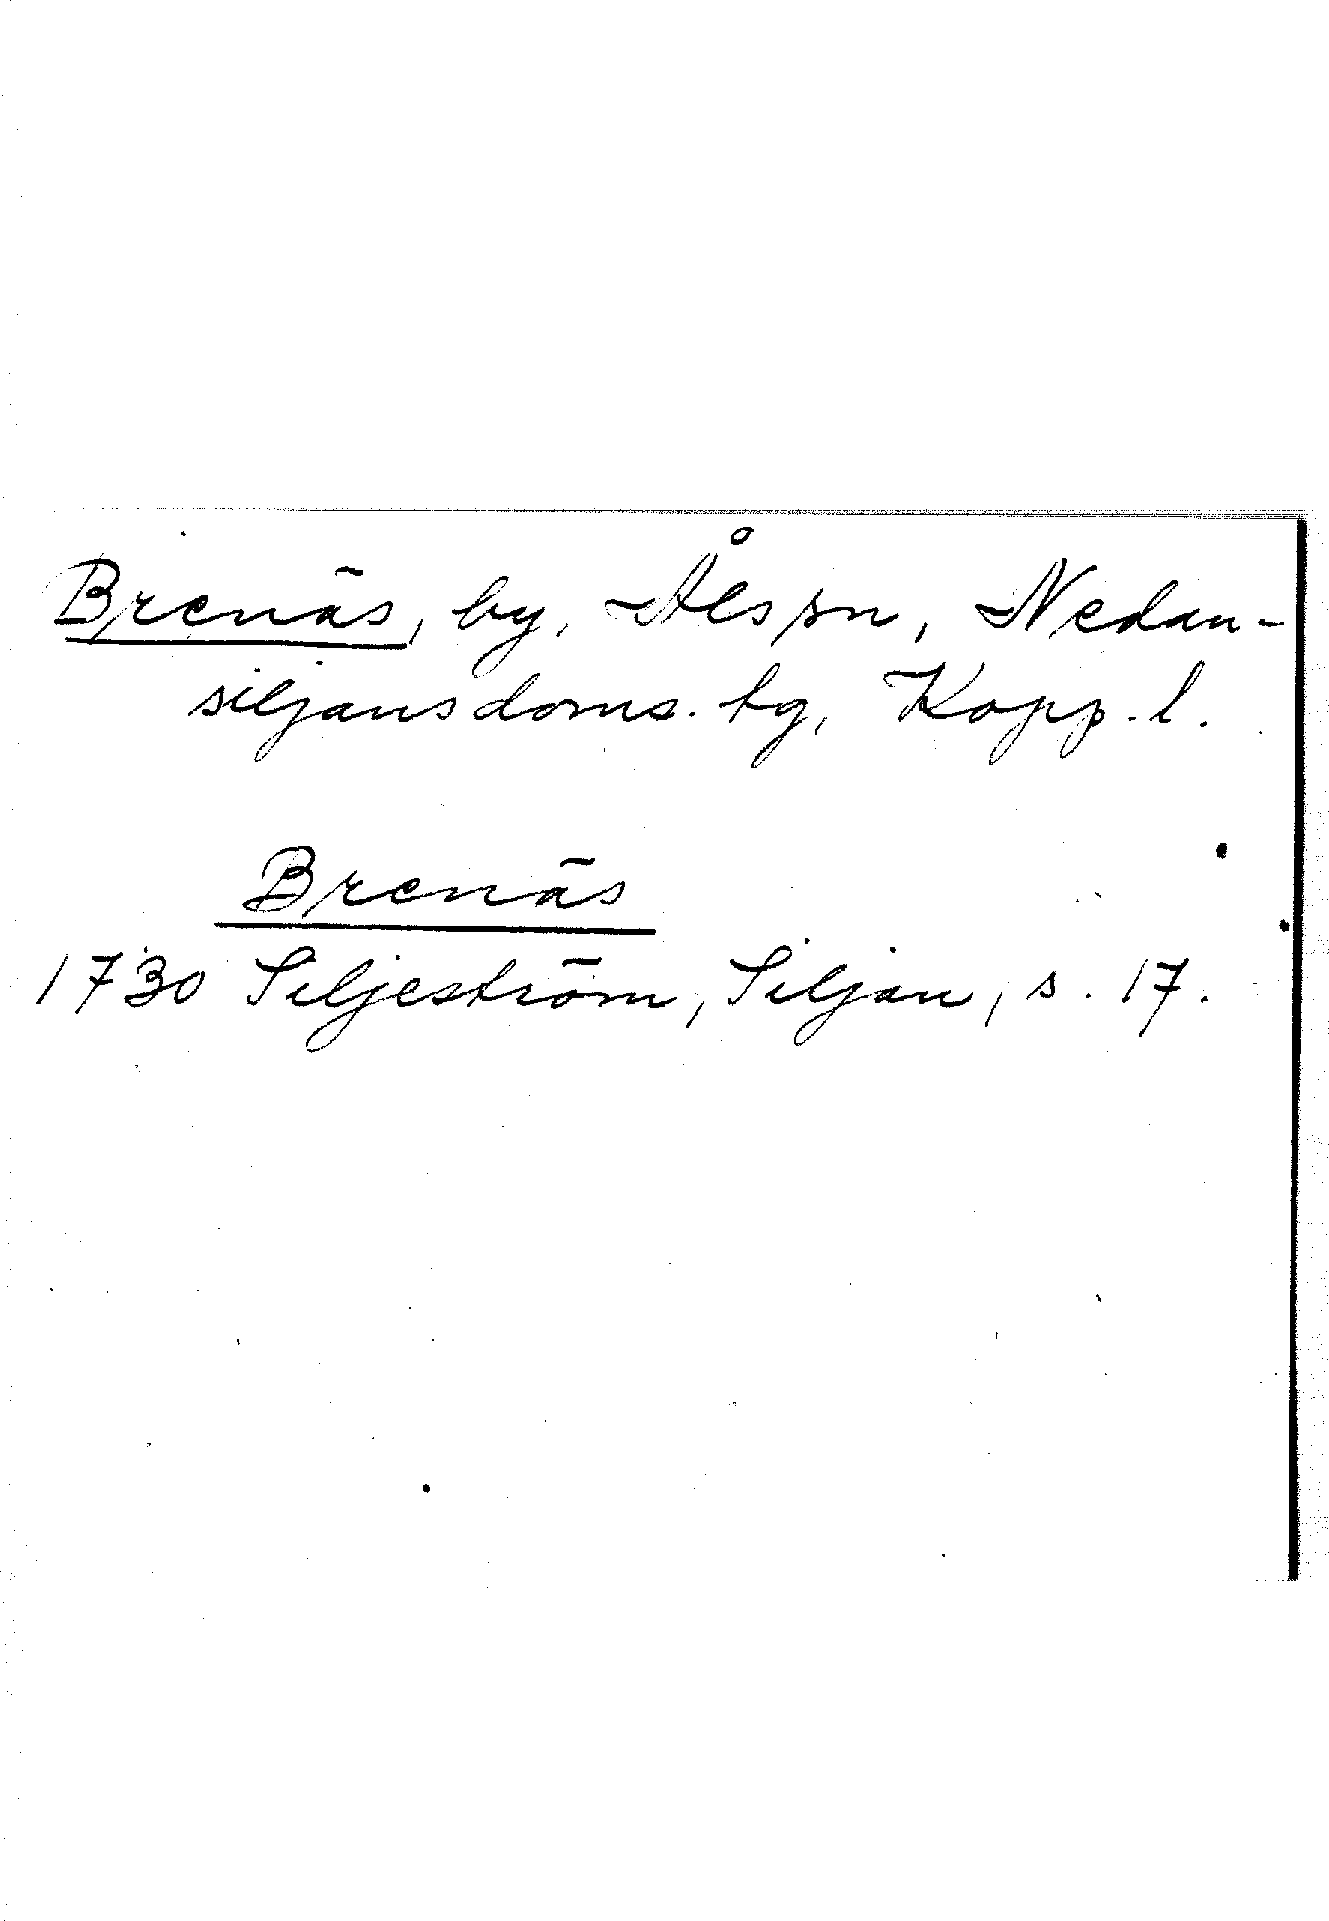 Brenäs, by, Åls sn, Nedan-
siljansdoms. tg, Kopp. l.
Brenäs
1730 Siljeström, Siljan, s. 17.